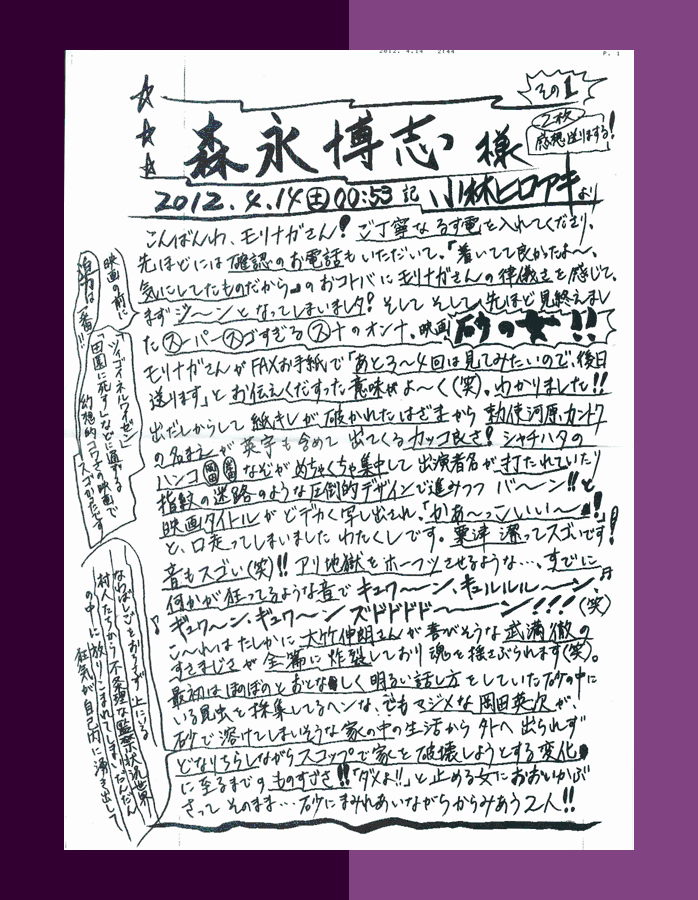 2012. 4.14 2:44 P. 1
その1
2枚
感想送りまする!
森永博志 様
2012.4.14(土)00:53記 小林ヒロアキより
こんばんわ、モリナガさん!ご丁寧なるす電を入れてくださり、
先ほどには確認のお電話もいただいて、「着いてて良かったよ〜、
気にしてたものだから」のおコトバにモリナガさんの律儀さを感じて、
まずジ〜ンとなってしまいましタ!そして そして先ほど見終えまし
たスーパースゴすぎるスナのオンナ、映画砂の女!!
モリナガさんがFAXお手紙で「あと3〜4回は見てみたいので、後日
送ります」とお伝えくだすった意味がよ〜く(笑)、わかりました!!
出だしからして紙キレが破かれたはざまから勅使河原、カントク
の名まえが英字も含めて出てくるカッコ良さ!シャチハタの
ハンコ 岡田 なぞがめちゃくちゃ集中して出演者名が打たれていたり
指紋の迷路のような圧倒的デザインで進みつつ バ〜ン!!と
映画タイトルがどデカく写し出され、「かあ〜っこいい〜!」
と、口走ってしまいましたわたくしです。粟津 潔ってスゴいです!!
音もスゴい(笑)!!アリ地獄をホーフツさせるような…、すでに
何かが狂ってるような音でキュワ〜ン、キュルルル〜ン♬
ギュワ〜ン、ギュワ〜ン ズドドドド〜ン!!!(笑)
こ〜れはたしかに大竹伸朗さんが喜びそうな武満徹の
すさまじさが全篇に炸裂しており魂を揺さぶられます(笑)。
最初はほのぼのとおとなしく明るい話し方をしていた砂の中に
いる昆虫を採集してるヘンな、でもマジメな岡田英次が、
砂で溶けてしまいそうな家の中の生活から外へ出られず
どなりちらしながらスコップで家を破壊しようとする変化
に至るまでのものすごさ!!「ダメよ!!」と止める女におおいかぶ
さってそのまま…砂にまみれあいながらからみあう2人!!
映画の前に
迫力は一番!!
「ツィゴイネルワイゼン」
「田園に死す」などに通ずる
幻想的コワさの映画で
スゴかったです
なわばしごをおろさず上にいる
村人たちから不条理な監禁状況世界
の中に放りこまれてしまいだんだん
狂気が自己内に湧き出して